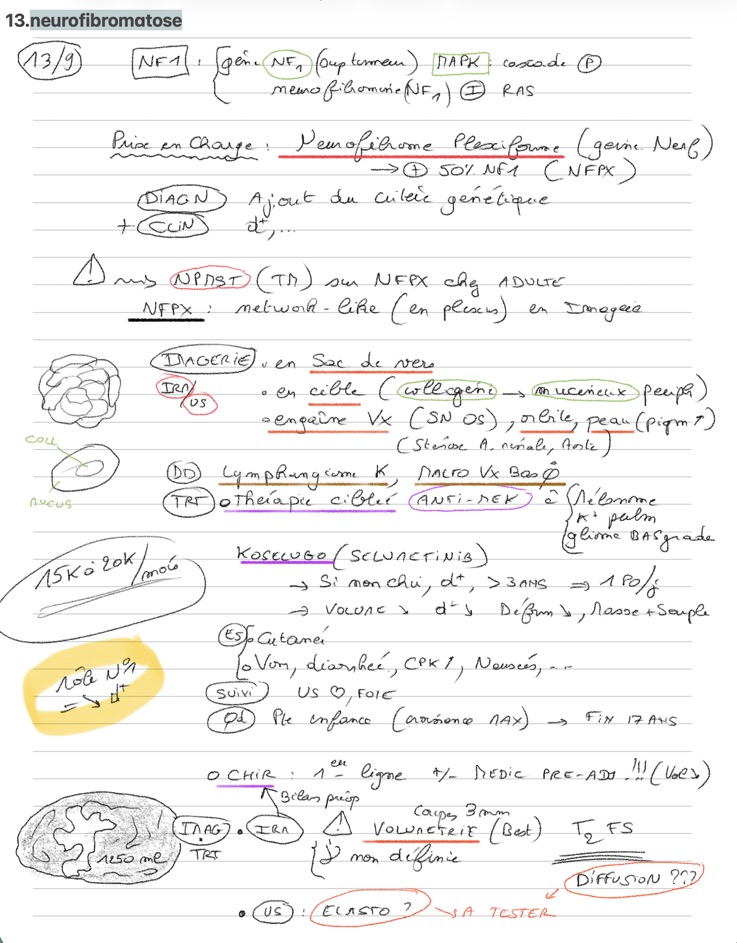 13.neurofibromatose
13/9 NF1 : gène NF1 (suptumeur) MAPK : cascade P
neurofibromine (NF1) I RAS
Prise en Charge : Neurofibrome Plexiforme (gaine Nerf)
→ + 50% NF1 (NFPX)
DIAGN Ajout du critère génétique
+ CLIN d+,...
! NPMST (TM) sur NFPX chez ADULTE
NFPX : network-like (en plexus) en Imagerie
IMAGERIE • en Sac de vers
IRM/US • en cible (collagène → mucineux periph)
• engaine Vx (SN OS), orbite, peau (pigm ↑)
(Sténose A. rénale, Aorte)
COLL
MUCUS
DD Lymphangiome K, MALFO Vx Bas ϕ
TRT o Thérapie ciblée ANTI-MEK à Mélanome
K+ pulm
gliome BAS grade
15K à 20K/mois
KOSELUGO (SELUMETINIB)
→ Si non chir, d+, > 3 ANS ⇒ 1 PO/j
→ VOLUME ↘ d+ ↘ Déform ↘, Masse + Souple
ES o Cutané
o Vom, diarrhée, CPK ↑, Nausées, ...
rôle N°1
= ↘ d+
SUIVI US ♡, FOIE
Qd Pte enfance (croissance MAX) → FIN 17 ANS
o CHIR : 1ere ligne +/- MEDIC PRE-ADJ !!! (Vol ↘)
Bilan préop
1250 ml
IMAG • IRM ! VOLUMETRIE (Best) T2 FS
coupes 3 mm
TRT
non définie
DIFFUSION ???
• US : ELASTO ? → A TESTER